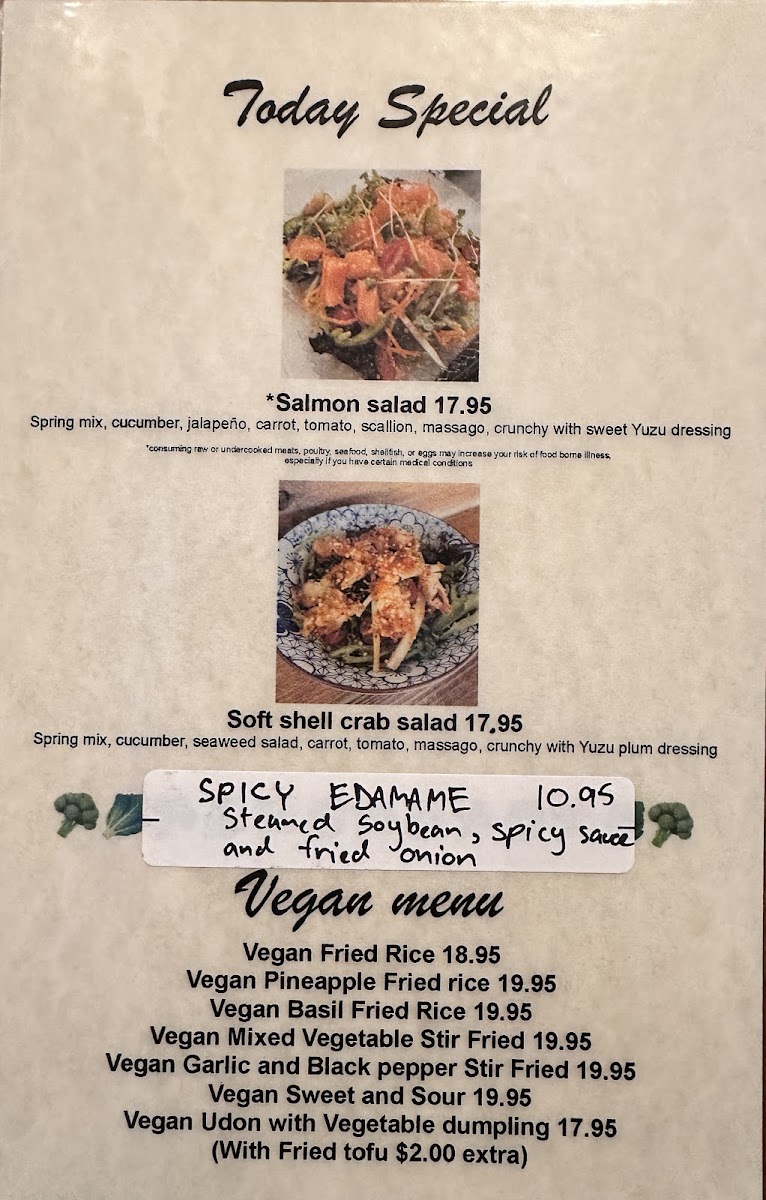 Today Special
*Salmon salad 17.95
Spring mix, cucumber, jalapeño, carrot, tomato, scallion, massago, crunchy with sweet Yuzu dressing
*consuming raw or undercooked meats, poultry, seafood, shellfish, or eggs may increase your risk of food borne illness,
especially if you have certain medical conditions
Soft shell crab salad 17.95
Spring mix, cucumber, seaweed salad, carrot, tomato, massago, crunchy with Yuzu plum dressing
SPICY EDAMAME 10.95
Steamed Soybean, spicy sauce
and fried onion
Vegan menu
Vegan Fried Rice 18.95
Vegan Pineapple Fried rice 19.95
Vegan Basil Fried Rice 19.95
Vegan Mixed Vegetable Stir Fried 19.95
Vegan Garlic and Black pepper Stir Fried 19.95
Vegan Sweet and Sour 19.95
Vegan Udon with Vegetable dumpling 17.95
(With Fried tofu $2.00 extra)